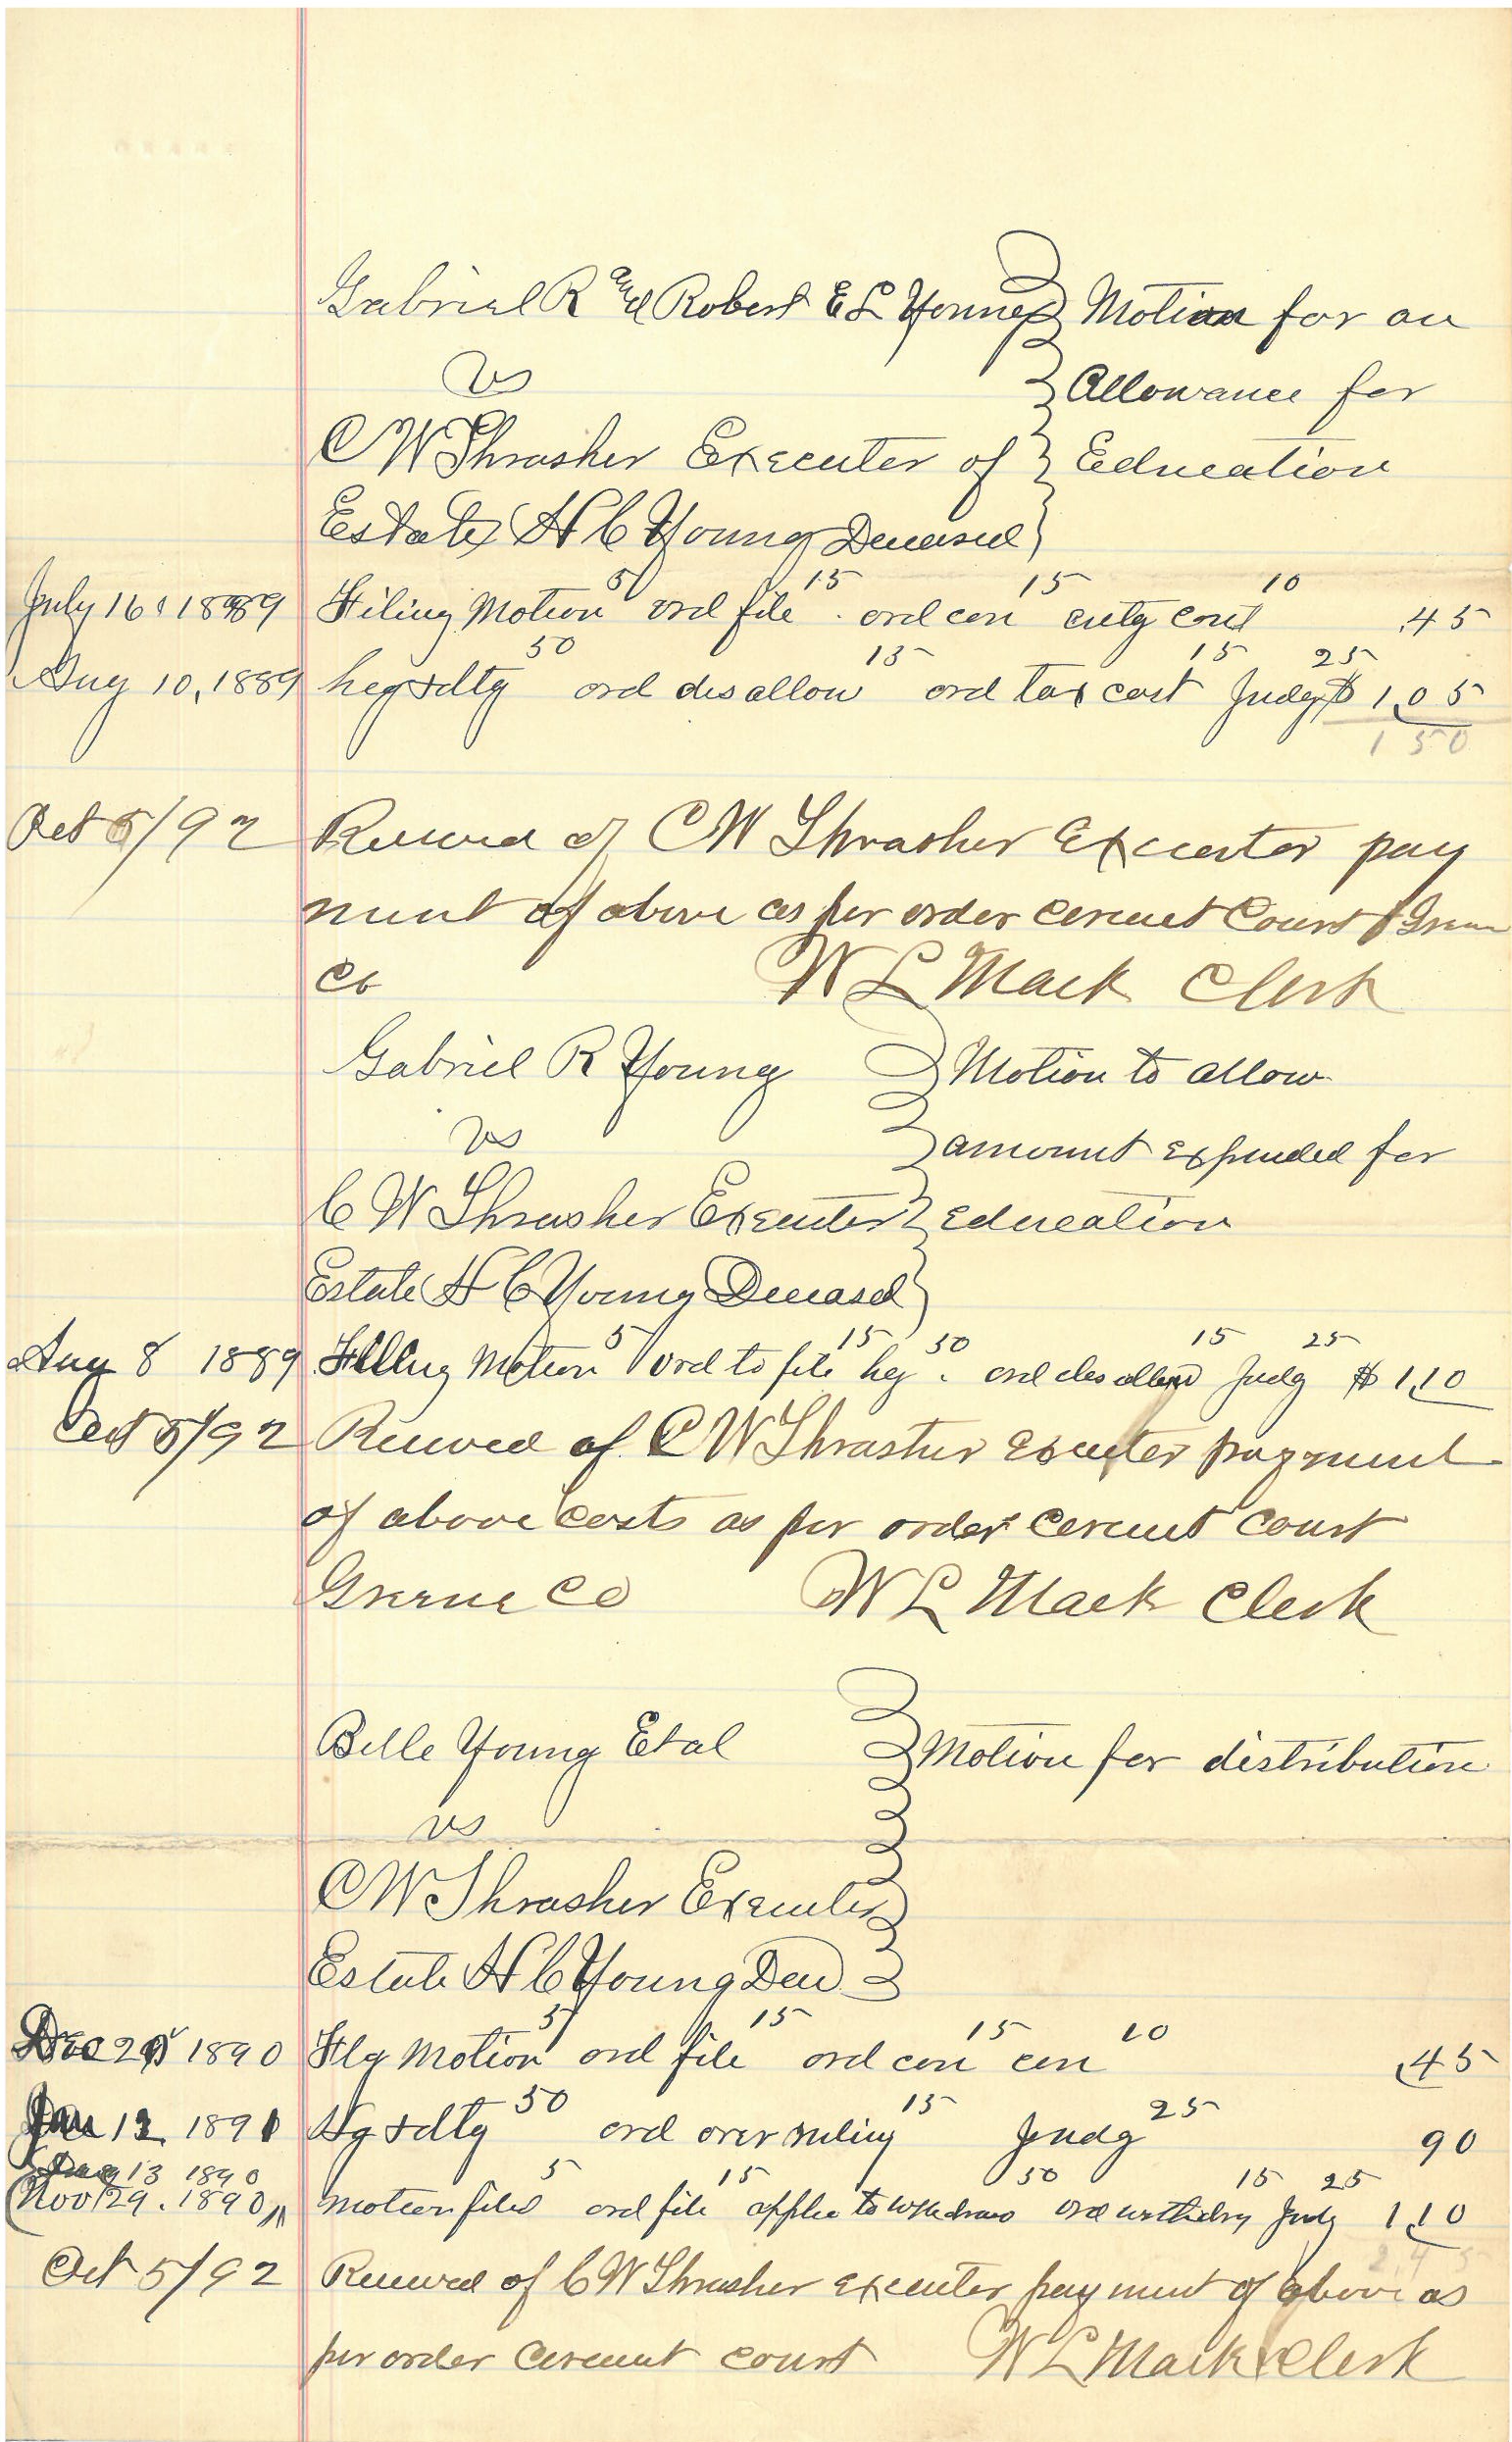 Gabriel R and Robert E L Young Motion for an
vs Allowance for
C W Thrasher Executer of Education
Estate H C Young Deceased
July 16 1889 Filing Motion 5 ord file 15 ord con 15 cont 10 .45
Aug 10, 1889 heg & dtg 50 ord disallow 15 ord tax cost 15 Judg 25 $1.05
1 50
Oct 5/92 Received of C W Thrasher Executor pay
ment of above as per order Circuit Court Green
Co W L Mack Clerk
Gabriel R Young Motion to allow
vs amount expended for
C W Thrasher Executer education
Estate H C Young Deceased
Aug 8 1889 Filling Motion 5 ord to file 15 heg 50 ord disallow 15 Judg 25 $1.10
Oct 5/92 Received of C W Thrasher Executer payment
of above costs as per order circuit court
Greene Co W L Mack Clerk
Belle Young Etal Motion for distribution
vs
C W Thrasher Executer
Estate H C Young Decd
Dec 1890 Flg Motion 5 ord file 15 ord con 15 con 10 .45
Jan 12 1891 Hg & dtg 50 ord over ruling 15 Judg 25 90
13 1890
(Nov 29. 1890 Motion filed 5 ord file 15 applic to withdraw 50 ord withdrg 15 Judg 25 1.10
2.45
Oct 5/92 Received of C W Thrasher executer payment of above as
per order circuit court W L Mack Clerk